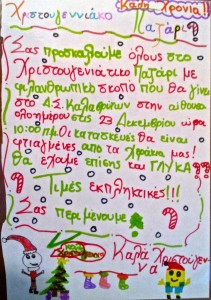 Χριστουγεννιάκο
Καλή Χρονιά!!
Παζάρι
Σας προσκαλούμε όλους στο
Χριστουγενιάτικο Παζάρι με
φιλανθρωπικό σκοπό που θα γίνει
στο Δ.Σ. Καλαφατών στην αίθουσα
ολοημέρου στις 23 Δεκεμβρίου ώρα
10:00 π.μ. Οι κατασκευές θα είναι
φτιαγμένες από τα χεράκια μας!
Θα έχουμε επίσης και ΓΛΥΚΑ
Τιμές εκπληκτικές!!!
Σας περιμένουμε
Καλά Χριστούγεν-
να